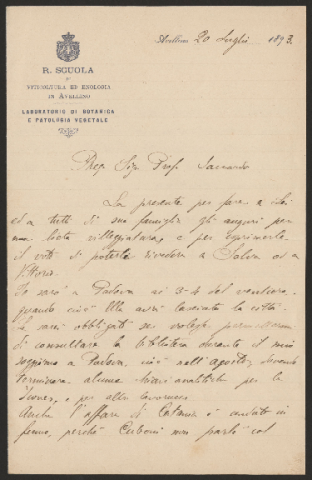 Avellino 20 Luglio 1893.
R. SCUOLA
DI
VITICOLTURA ED ENOLOGIA
IN AVELLINO
LABORATORIO DI BOTANICA
E PATOLOGIA VEGETALE
Preg. Sig. Prof. Saccardo
La presente per fare a Lei
ed a tutti di sua famiglia gli auguri per
una lieta villeggiatura, e per esprimerle
il voto di poterla rivedere a Selva od a
Vittorio.
Io sarò a Padova ai 3-4 del venturo,
quando cioè Ella avrà lasciata la città.
Le sarò obbligato se volesse permettermi
di consultare la biblioteca durante il mio
soggiorno a Padova, cioè nell'agosto, dovendo
terminare alcune chiavi analitiche per le
e per altro
Anche l'affare di Catania è andato in
fumo, perchè Cuboni non parlò col